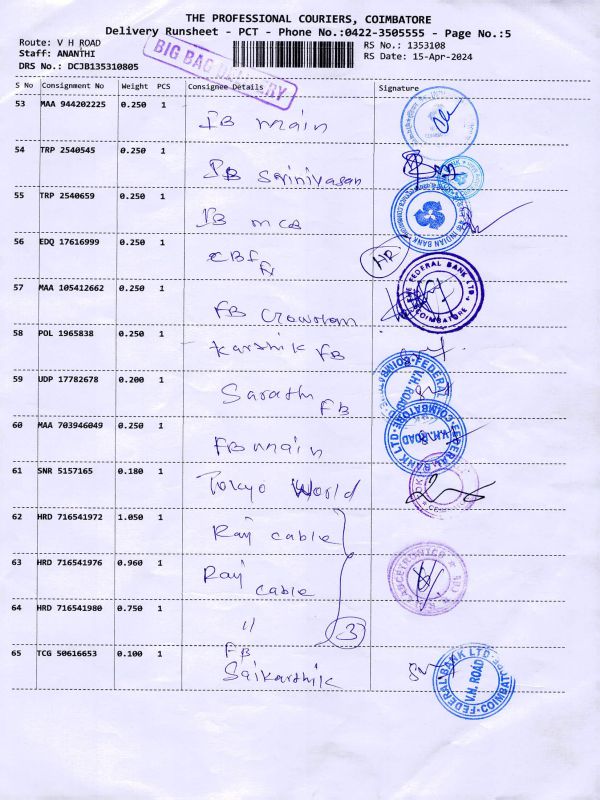 THE PROFESSIONAL COURIERS, COIMBATORE
Delivery Runsheet - PCT - Phone No.:0422-3505555 - Page No.:5
Route: V H ROAD
Staff: ANANTHI
DRS No.: DCJB135310805
RS No.: 1353108
RS Date: 15-Apr-2024
BIG BAG DELIVERY
S No Consignment No Weight PCS Consignee Details Signature
53 MAA 944202225 0.250 1
IB main
54 TRP 2540545 0.250 1
IB Srinivasan
55 TRP 2540659 0.250 1
IB MCB
INDIAN BANK
56 EDQ 17616999 0.250 1
HR
THE FEDERAL BANK LTD
COIMBATORE
57 MAA 105412662 0.250 1
FB
58 POL 1965838 0.250 1
Karthik FB
59 UDP 17782678 0.200 1
Sarath FB
V.H. ROAD
60 MAA 703946049 0.250 1
FB main
FEDERAL BANK LTD. COIMBATORE
V.H. ROAD
61 SNR 5157165 0.180 1
Tokyo World
62 HRD 716541972 1.050 1
Raj cable
63 HRD 716541976 0.960 1
Raj cable
64 HRD 716541980 0.750 1
11
3
65 TCG 50616653 0.100 1
FB
Saikarthik
FEDERAL BANK LTD.
V.H. ROAD